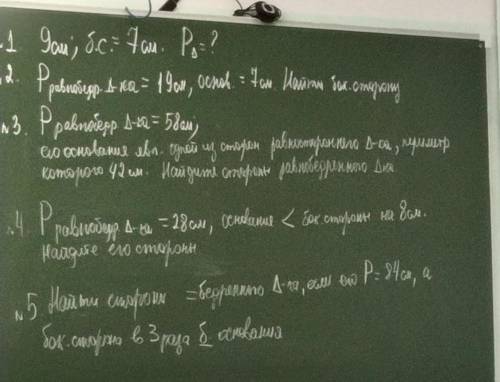 .1 9см; б.с. = 7см. P∆ = ?
.2. Pравнобедр. ∆-ка = 19см, основ. = 7см. Найти бок. сторону
№3. Pравнобедр ∆-ка = 58см;
его основание явл. одной из сторон равностороннего ∆-ка, периметр
которого 42см. Найдите стороны равнобедренного ∆-ка
№4. Pравнобедр. ∆-ка = 28см, основание < бок. стороны на 8см.
Найдите его стороны
№5. Найти стороны =бедренного ∆-ка, если его P = 84см, а
бок. сторона в 3 раза б основания